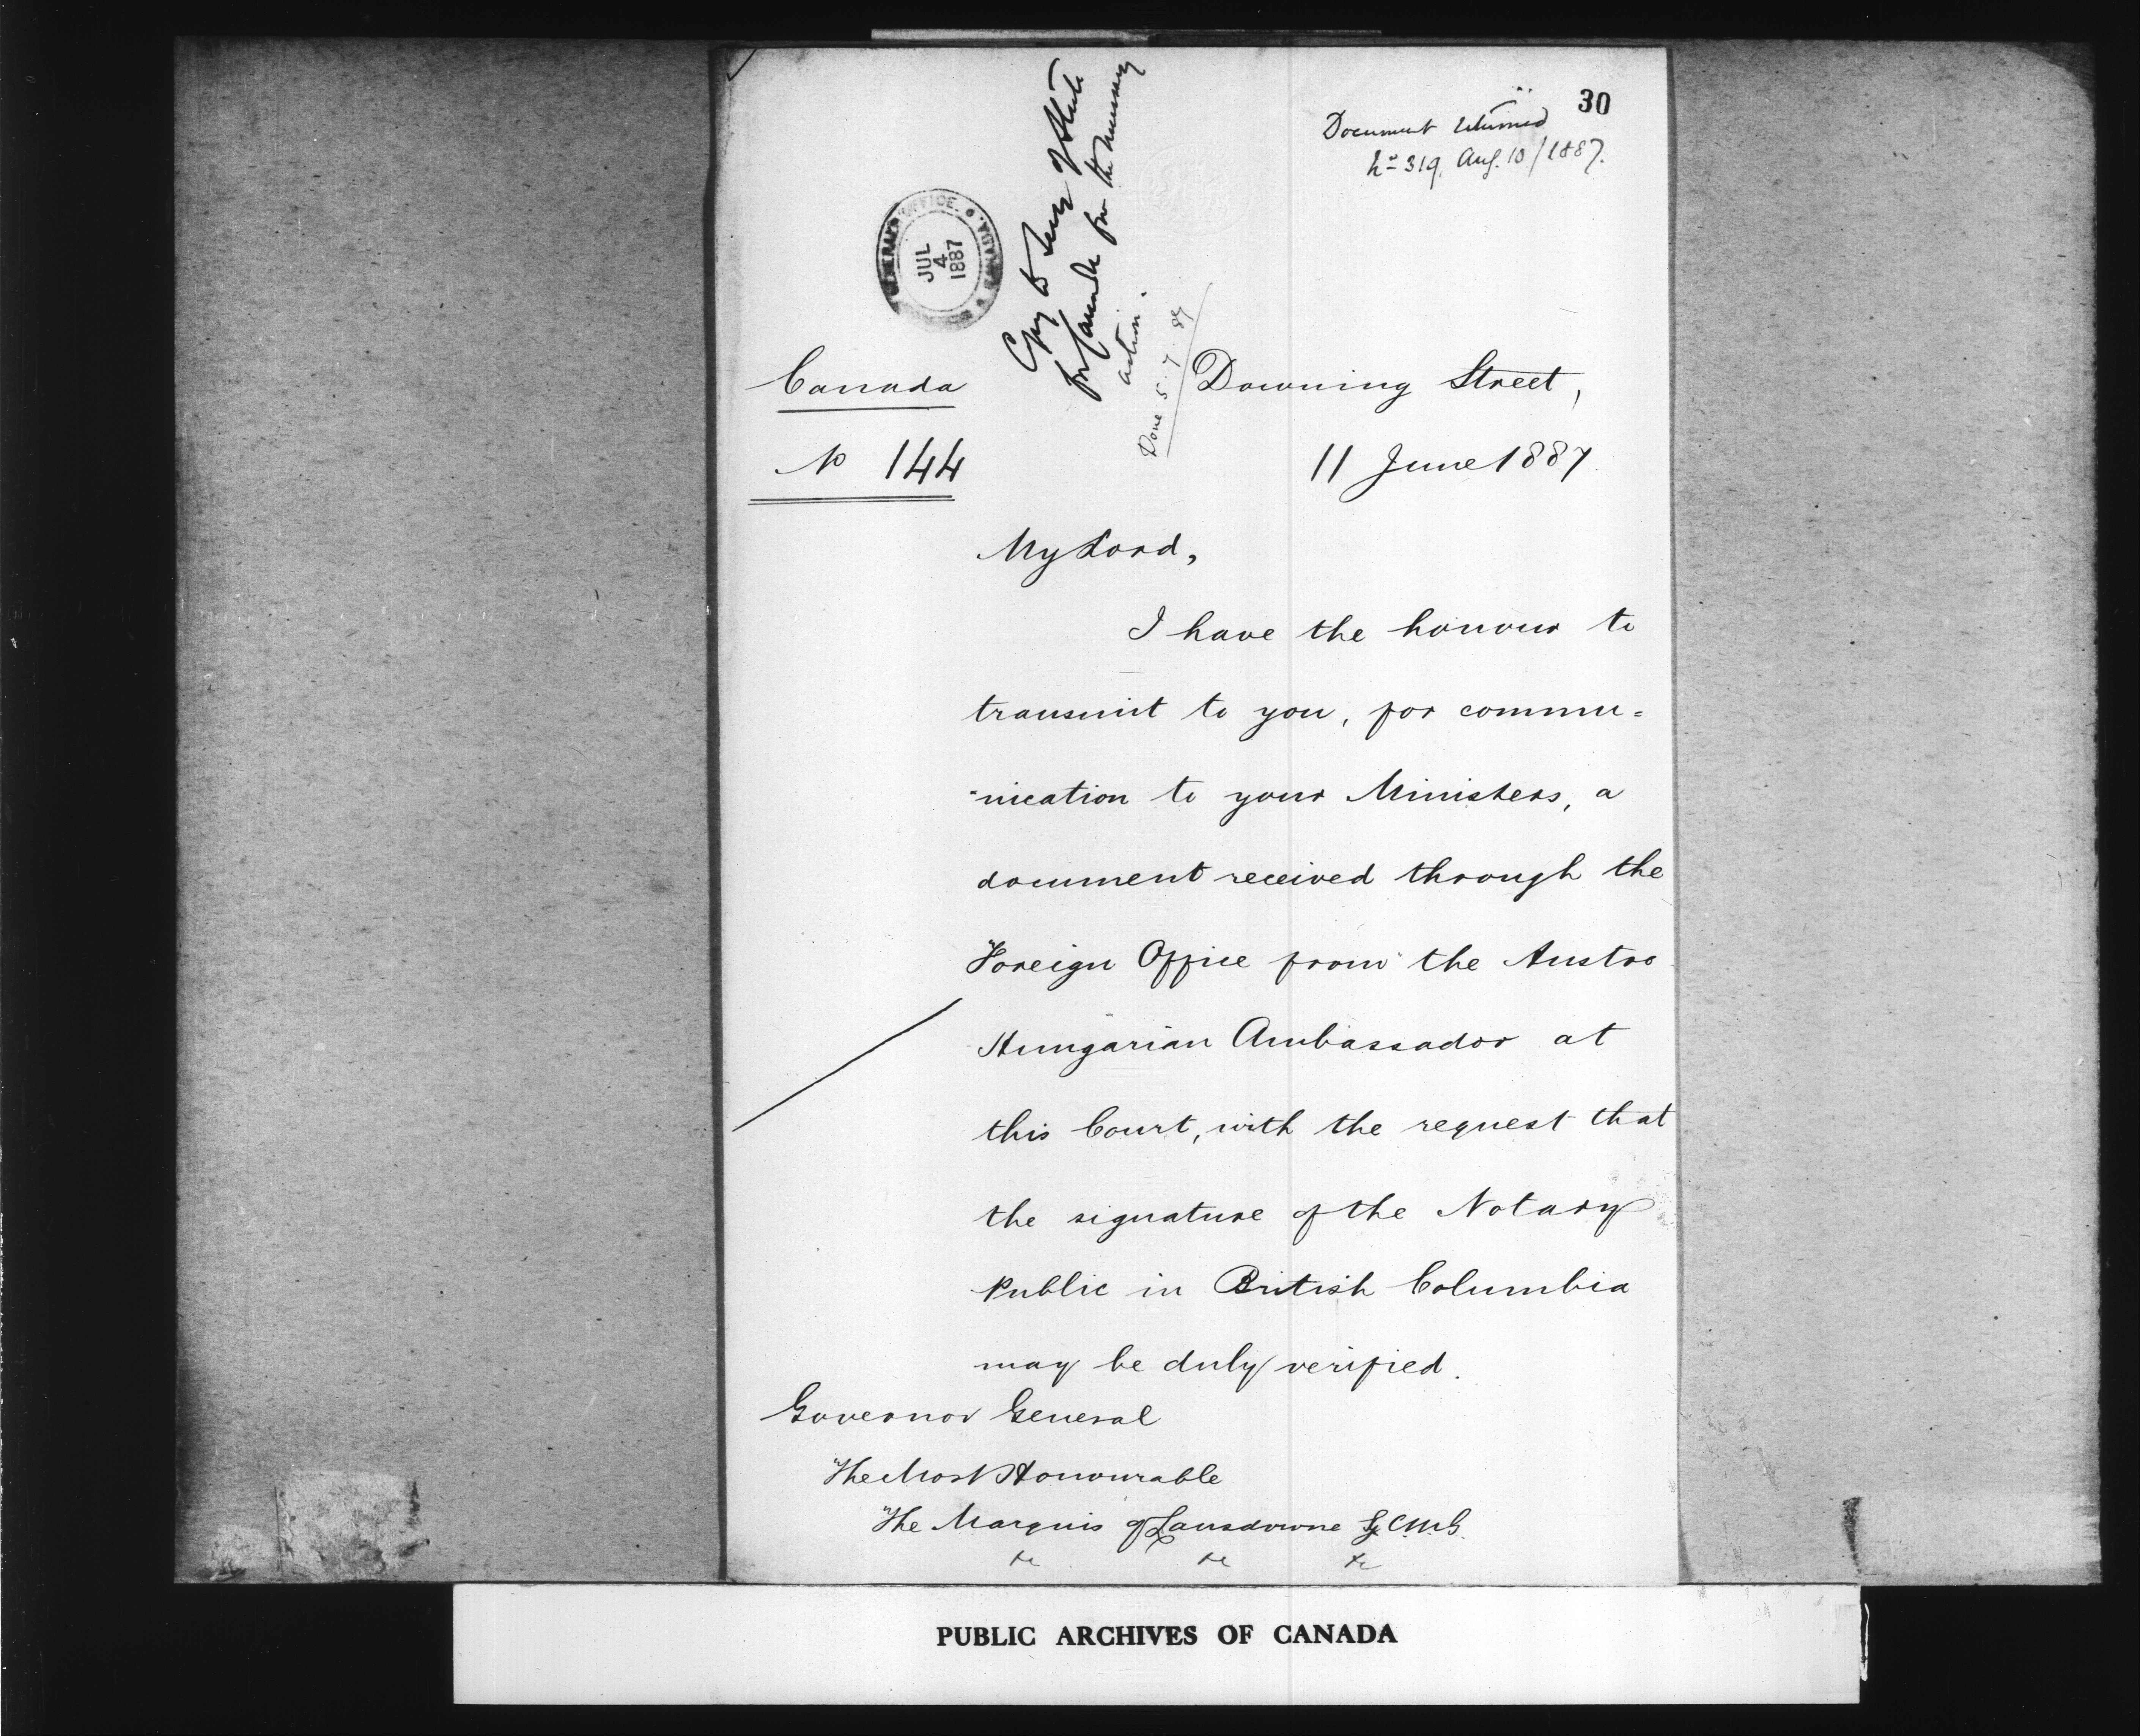 30
Document returned
No 319, Aug. 10/1887.
GENERAL'S OFFICE. CANADA
JUL
4
1887
Copy to Secy of State
for Canada for the necessary
action.
Done 5.7.87
Canada
Downing Street,
No 144
11 June 1887.
My Lord,
I have the honour to
transmit to you, for commu=
-nication to your Ministers, a
document received through the
Foreign Office from the Austro
Hungarian Ambassador at
this Court, with the request that
the signature of the Notary
Public in British Columbia
may be duly verified.
Governor General
The Most Honourable
The Marquis of Lansdowne G.C.M.G.
&c &c &c
PUBLIC ARCHIVES OF CANADA